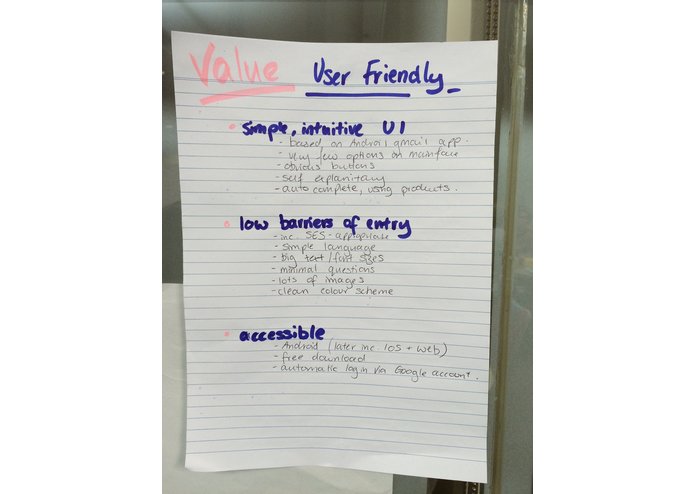 Value User Friendly
• simple, intuitive UI
- based on Android gmail app.
- very few options on mainface
- obvious buttons
- self explanitary
- auto complete, using products.
• low barriers of entry
- inc. SES-appropriate
- simple language
- big text/font sizes
- minimal questions
- lots of images
- clean colour scheme
• accessible
- Android (later inc. IOS + web)
- free download
- automatic login via Google account.